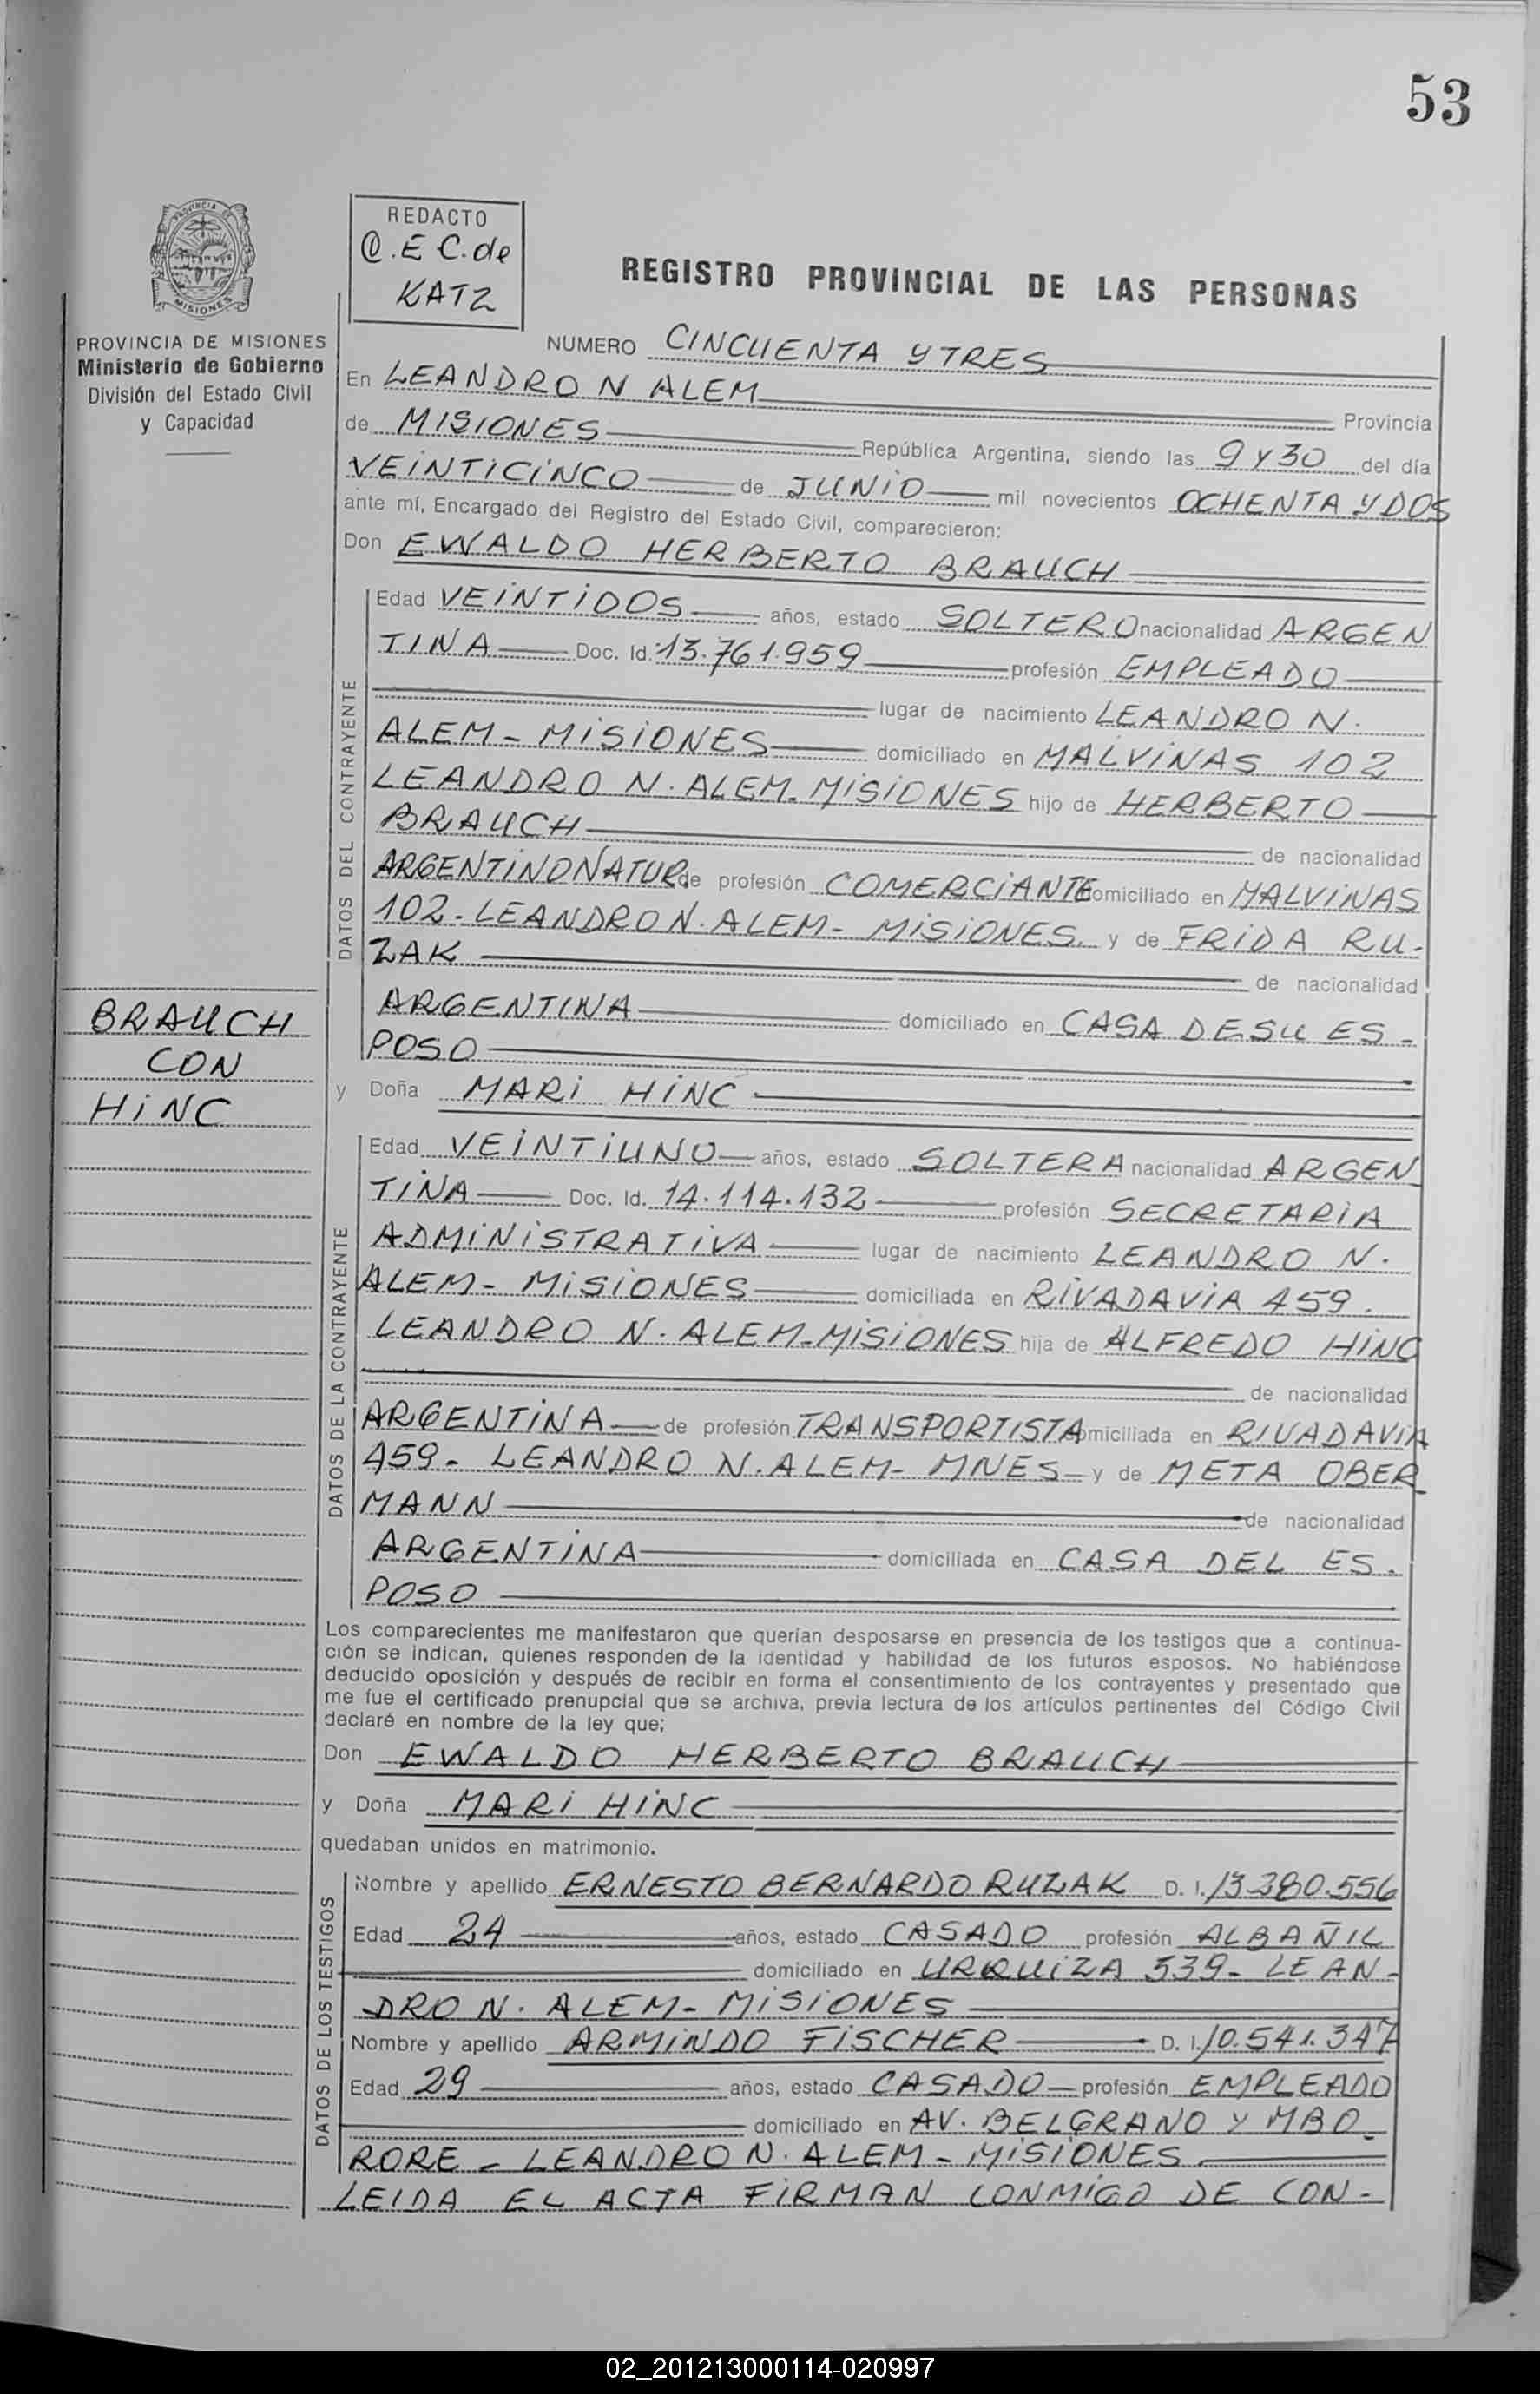 53
PROVINCIA DE
MISIONES
PROVINCIA DE MISIONES
Ministerio de Gobierno
División del Estado Civil
y Capacidad
REDACTO
E C. de
KATZ
REGISTRO PROVINCIAL DE LAS PERSONAS
NUMERO CINCUENTA Y TRES
En LEANDRO N ALEM Provincia
de MISIONES República Argentina, siendo las 9 y 30 del día
VEINTICINCO de JUNIO mil novecientos OCHENTA Y DOS
ante mí, Encargado del Registro del Estado Civil, comparecieron:
Don EWALDO HERBERTO BRAUCH
DATOS DEL CONTRAYENTE
Edad VEINTIDOS años, estado SOLTERO nacionalidad ARGEN
TINA Doc. Id. 13.761.959 profesión EMPLEADO
lugar de nacimiento LEANDRO N.
ALEM - MISIONES domiciliado en MALVINAS 102
LEANDRO N. ALEM - MISIONES hijo de HERBERTO
BRAUCH de nacionalidad
ARGENTINO NATUR de profesión COMERCIANTE domiciliado en MALVINAS
102 - LEANDRO N. ALEM - MISIONES. y de FRIDA RU-
ZAK de nacionalidad
ARGENTINA domiciliado en CASA DE SU ES -
POSO
BRAUCH
CON
HINC
y Doña MARI HINC
DATOS DE LA CONTRAYENTE
Edad VEINTIUNO años, estado SOLTERA nacionalidad ARGEN
TINA Doc. Id. 14.114.132 profesión SECRETARIA
ADMINISTRATIVA lugar de nacimiento LEANDRO N.
ALEM - MISIONES domiciliada en RIVADAVIA 459.
LEANDRO N. ALEM - MISIONES hija de ALFREDO HINC
de nacionalidad
ARGENTINA de profesión TRANSPORTISTA domiciliada en RIVADAVIA
459 - LEANDRO N. ALEM - MNES - y de META OBER
MANN de nacionalidad
ARGENTINA domiciliada en CASA DEL ES -
POSO
Los comparecientes me manifestaron que querían desposarse en presencia de los testigos que a continua-
ción se indican, quienes responden de la identidad y habilidad de los futuros esposos. No habiéndose
deducido oposición y después de recibir en forma el consentimiento de los contrayentes y presentado que
me fue el certificado prenupcial que se archiva, previa lectura de los artículos pertinentes del Código Civil
declaré en nombre de la ley que;
Don EWALDO HERBERTO BRAUCH
y Doña MARI HINC
quedaban unidos en matrimonio.
DATOS DE LOS TESTIGOS
Nombre y apellido ERNESTO BERNARDO RUZAK D. I. 13.380.556
Edad 24 años, estado CASADO profesión ALBAÑIL
domiciliado en URQUIZA 539 - LEAN -
DRO N. ALEM - MISIONES
Nombre y apellido ARMINDO FISCHER D. I. 10.541.347
Edad 29 años, estado CASADO profesión EMPLEADO
domiciliado en AV. BELGRANO Y MBO
RORE - LEANDRO N. ALEM - MISIONES
LEIDA EL ACTA FIRMAN CONMIGO DE CON -
02_201213000114-020997